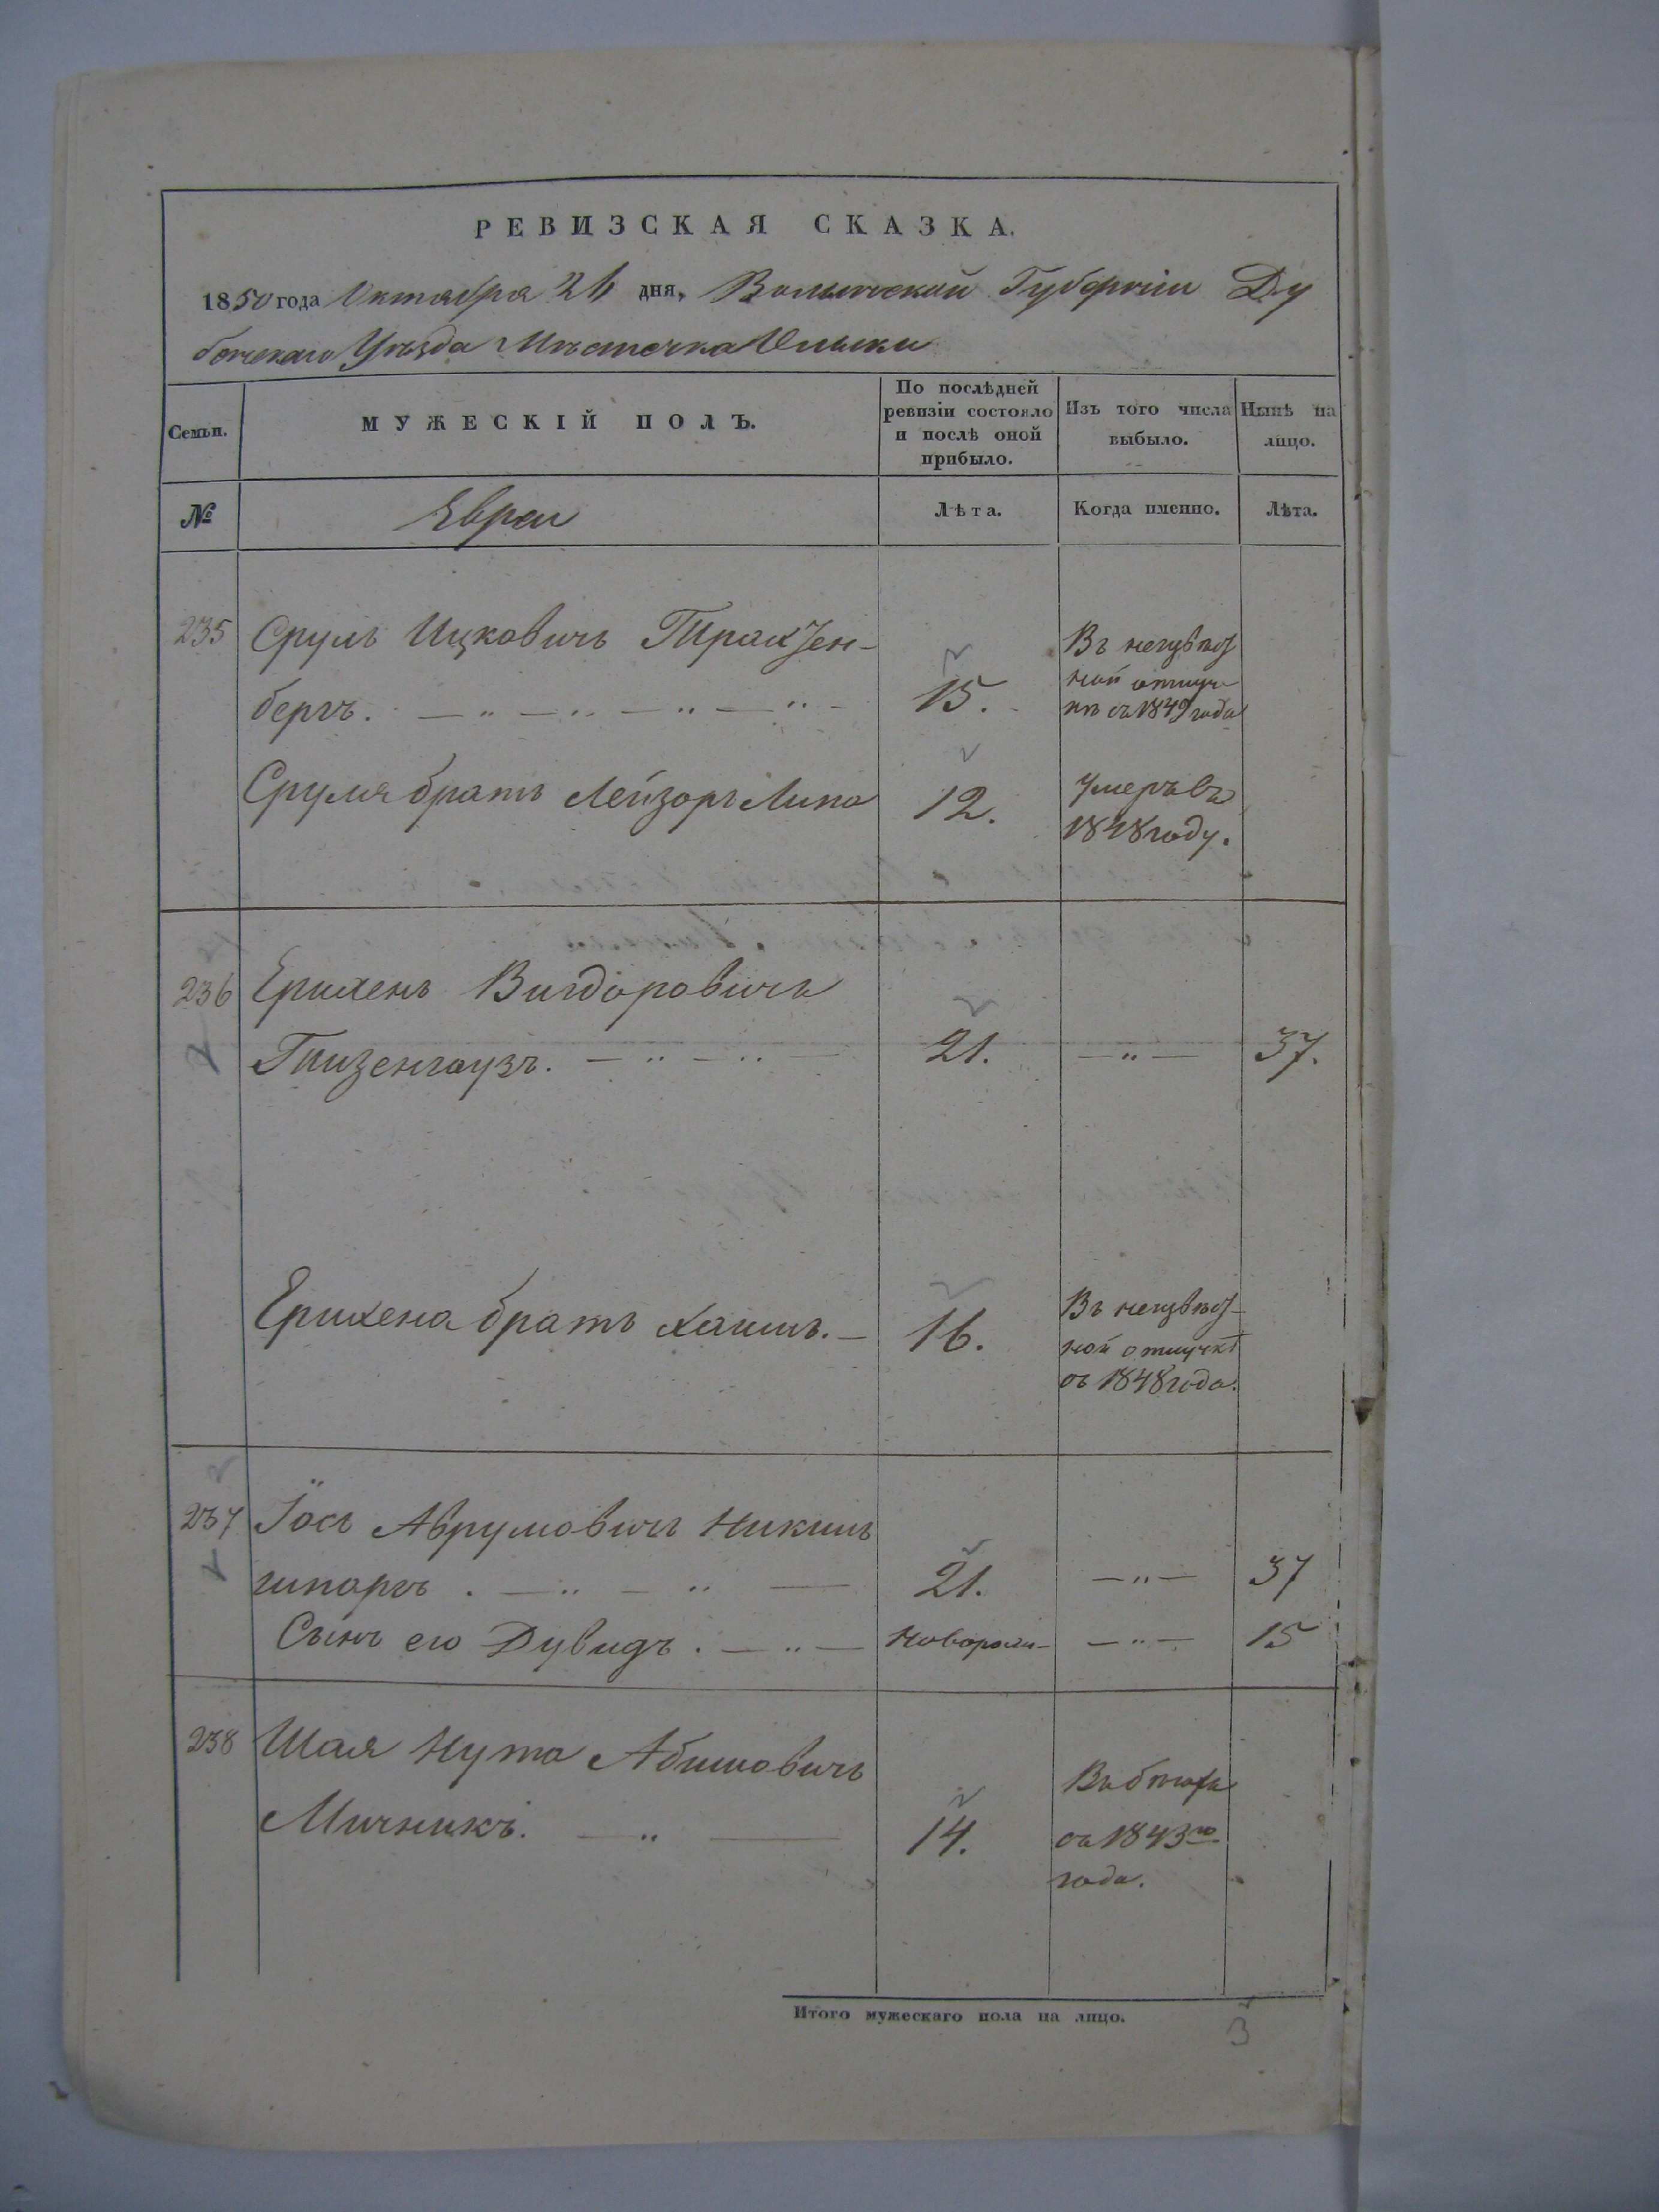 РЕВИЗСКАЯ СКАЗКА.
1850 года Октября 26 дня, Волынской Губерніи Ду
бенскаго Уѣзда Мѣстечка Олыки
Семьи.
МУЖЕСКІЙ ПОЛЪ.
По послѣдней
ревизіи состояло
и послѣ оной
прибыло.
Изъ того числа
выбыло.
Нынѣ на
лицо.
№
Евреи
Лѣта.
Когда именно.
Лѣта.
235 Сруль Ицковичъ Тракзен-
бергъ. 15. Въ неизвѣст
ной отлуч
кѣ съ 1849 года
Сруля братъ Лейзоръ Липа 12. Умеръ въ
1848 году.
236 Ерихень Вигдоровичъ
Тизенгаузъ. 21. — " — 37.
Ерихена братъ Хаимъ. — 16. Въ неизвѣст-
ной отлучкѣ
съ 1848 года.
237 Іось Аврумовичъ Никель
шпаргъ. 21. — " — 37
Сынъ его Дувидъ. — " — Новорож- — " — 15
238 Шая Нута Абишовичъ
Мичникъ. — " — 14. Въ бѣгахъ
съ 1843го
года.
Итого мужескаго пола на лицо. 3